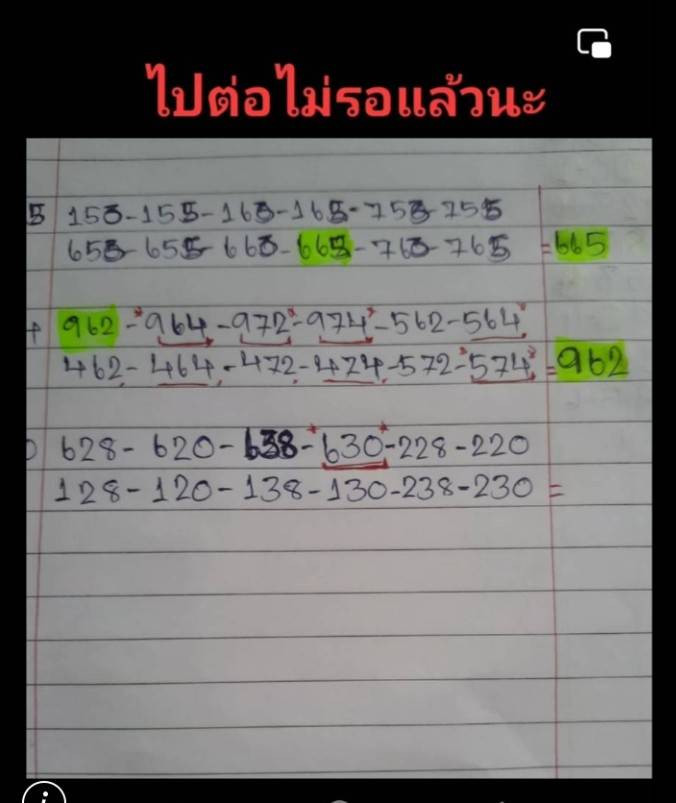 ไปต่อไม่รอแล้วนะ
5 153-155-163-165-753-755
653-655-663-665-763-765 =665
962-964-972-974-562-564
462-464-472-474-572-574 =962
628-620-638-630-228-220
128-120-138-130-238-230 =